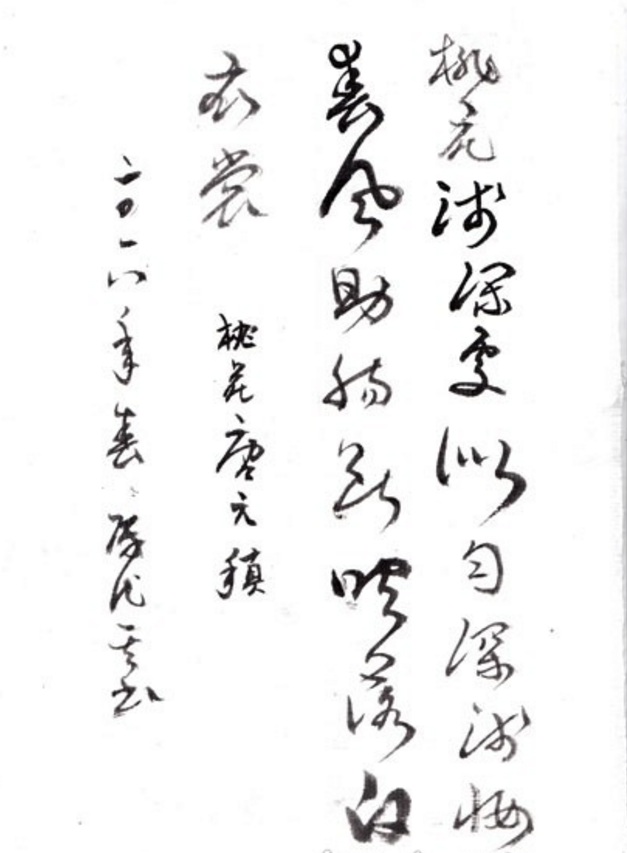 桃花浅深处似匀深浅妆
春风助肠断吹落白
衣裳 桃花 唐 元稹
二〇一八年春 书